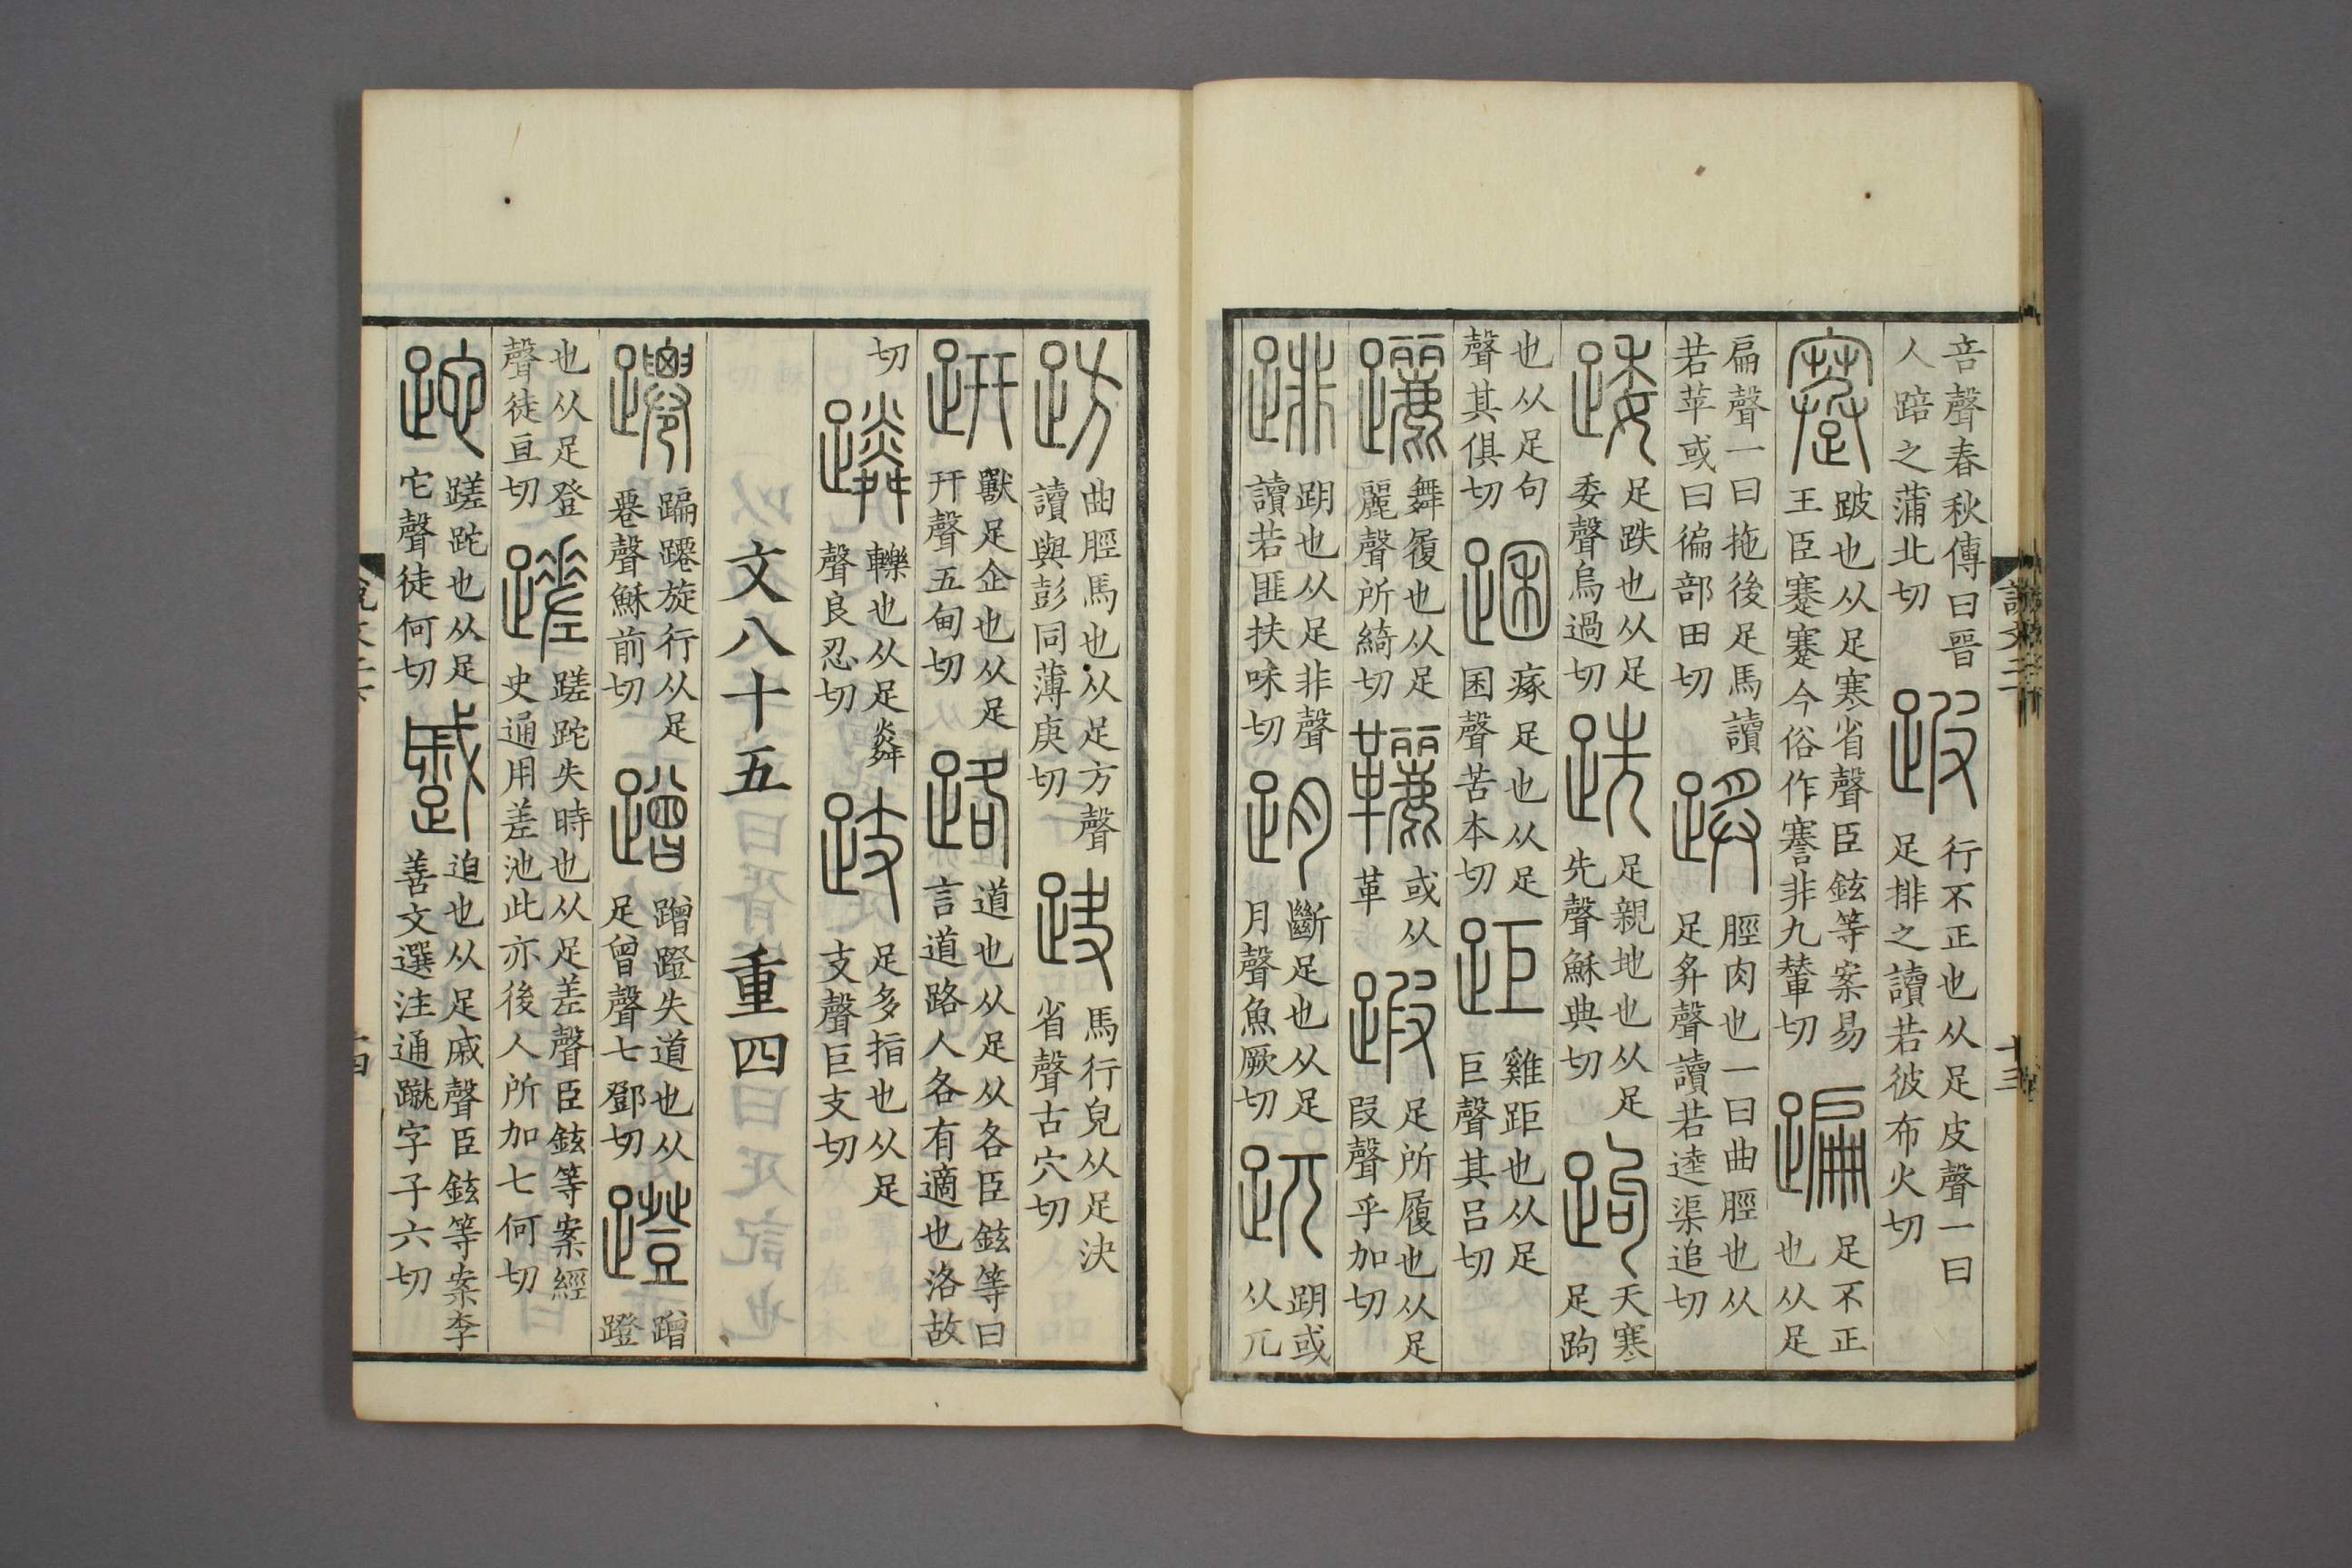 咅聲春秋傳曰晉
人踣之蒲北切
跛
行不正也从足皮聲一曰
足排之讀若彼布火切
蹇
跛也从足寒省聲臣鉉等案易
王臣蹇蹇今俗作謇非九輦切
蹁
足不正
也从足
扁聲一曰拖後足馬讀
若苹或曰徧部田切
䠏
脛肉也一曰曲脛也从
足𢍏聲讀若逵渠追切
踒
足跌也从足
委聲烏過切
跣
足親地也从足
先聲穌典切
跔
天寒
足跔
也从足句
聲其俱切
䠅
瘃足也从足
困聲苦本切
距
雞距也从足
巨聲其呂切
躧
舞履也从足
麗聲所綺切
䩻
或从
革
踀
足所履也从足
叚聲乎加切
跀也从足非聲
讀若匪扶味切
跀
斷足也从足
月聲魚厥切
跀或
从兀
說文二下
十三
趽
曲脛馬也从足方聲
讀與彭同薄庚切
趹
馬行皃从足決
省聲古穴切
趼
獸足企也从足
幵聲五甸切
路
道也从足从各臣鉉等曰
言道路人各有適也洛故
切
蹸
轢也从足粦
聲良忍切
跂
足多指也从足
支聲巨支切
文八十五　重四
蹮
蹁蹮旋行从足
䙴聲穌前切
蹭
蹭蹬失道也从
足曾聲七鄧切
蹬
蹭
蹬
也从足登
聲徒亘切
蹉
蹉跎失時也从足差聲臣鉉等案經
史通用差池此亦後人所加七何切
跎
蹉跎也从足
它聲徒何切
蹙
迫也从足戚聲臣鉉等案李
善文選注通蹴字子六切